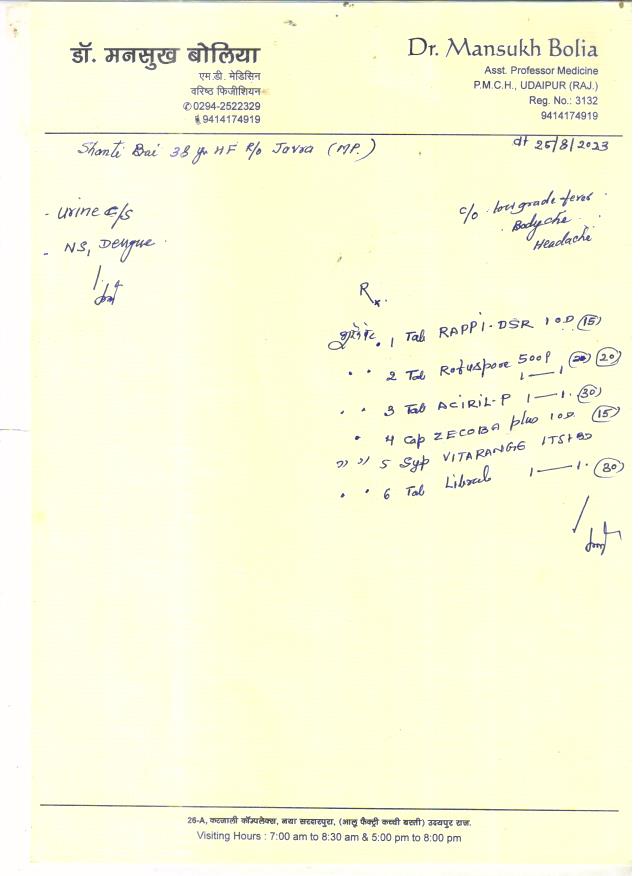 डॉ. मनसुख बोलिया
एम.डी. मेडिसिन
वरिष्ठ फिजीशियन
✆0294-2522329
9414174919
Dr. Mansukh Bolia
Asst. Professor Medicine
P.M.C.H., UDAIPUR (RAJ.)
Reg. No.: 3132
9414174919
Shanti Bai 38 yr HF R/o Javra (MP.)
dt 25/8/2023
- Urine C/S
- NS, Dengue
c/o low grade fever
Bodyche
Headache
Rx.
1 Tab RAPPI-DSR 1 OD (15)
2 Tab 500 (20)
1—1
3 Tab ACIRIL-P 1—1. (30)
4 Cap ZECOBA plus 1 OD. (15)
” ” 5 Syp VITARANGE 1TS1BD
6 Tab 1—1. (30)
26-A, करनाली कॉम्पलेक्स, नया सरदारपुरा, (भालू फैक्ट्री कच्ची बस्ती) उदयपुर राज.
Visiting Hours : 7:00 am to 8:30 am & 5:00 pm to 8:00 pm